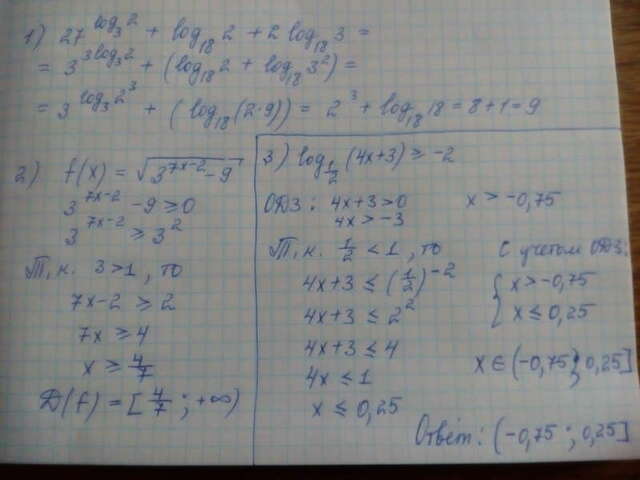 1) 27^{log_3 2} + log_{18} 2 + 2 log_{18} 3 =
= 3^{3 log_3 2} + (log_{18} 2 + log_{18} 3^2) =
= 3^{log_3 2^3} + (log_{18} (2·9)) = 2^3 + log_{18} 18 = 8 + 1 = 9
2) f(x) = √(3^{7x-2} - 9)
3^{7x-2} - 9 ≥ 0
3^{7x-2} ≥ 3^2
Т,к. 3 > 1, то
7x-2 ≥ 2
7x ≥ 4
x ≥ 4/7
D(f) = [4/7 ; +∞)
3) log_{1/2} (4x+3) ≥ -2
ОДЗ: 4x+3 > 0
4x > -3
x > -0,75
Т,к. 1/2 < 1, то
4x+3 ≤ (1/2)^{-2}
4x+3 ≤ 2^2
4x+3 ≤ 4
4x ≤ 1
x ≤ 0,25
С учетом ОДЗ:
{ x > -0,75
x ≤ 0,25
x ∈ (-0,75; 0,25]
Ответ: (-0,75 ; 0,25]